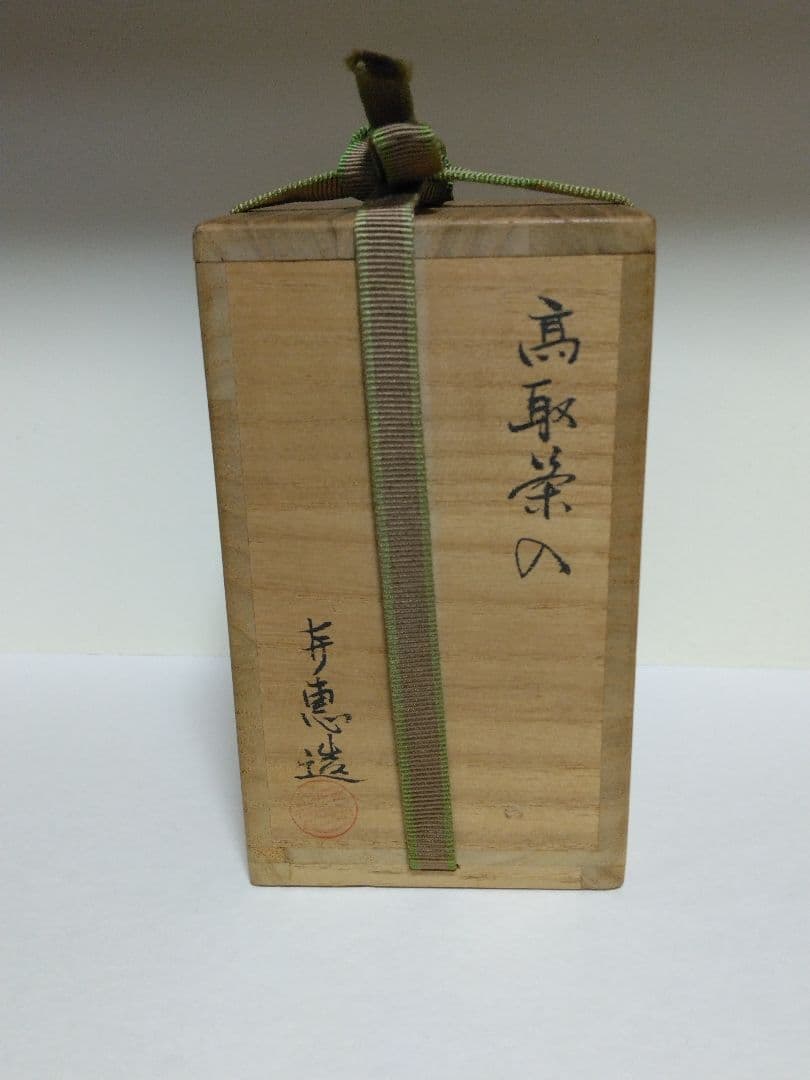 高取茶入
恵造